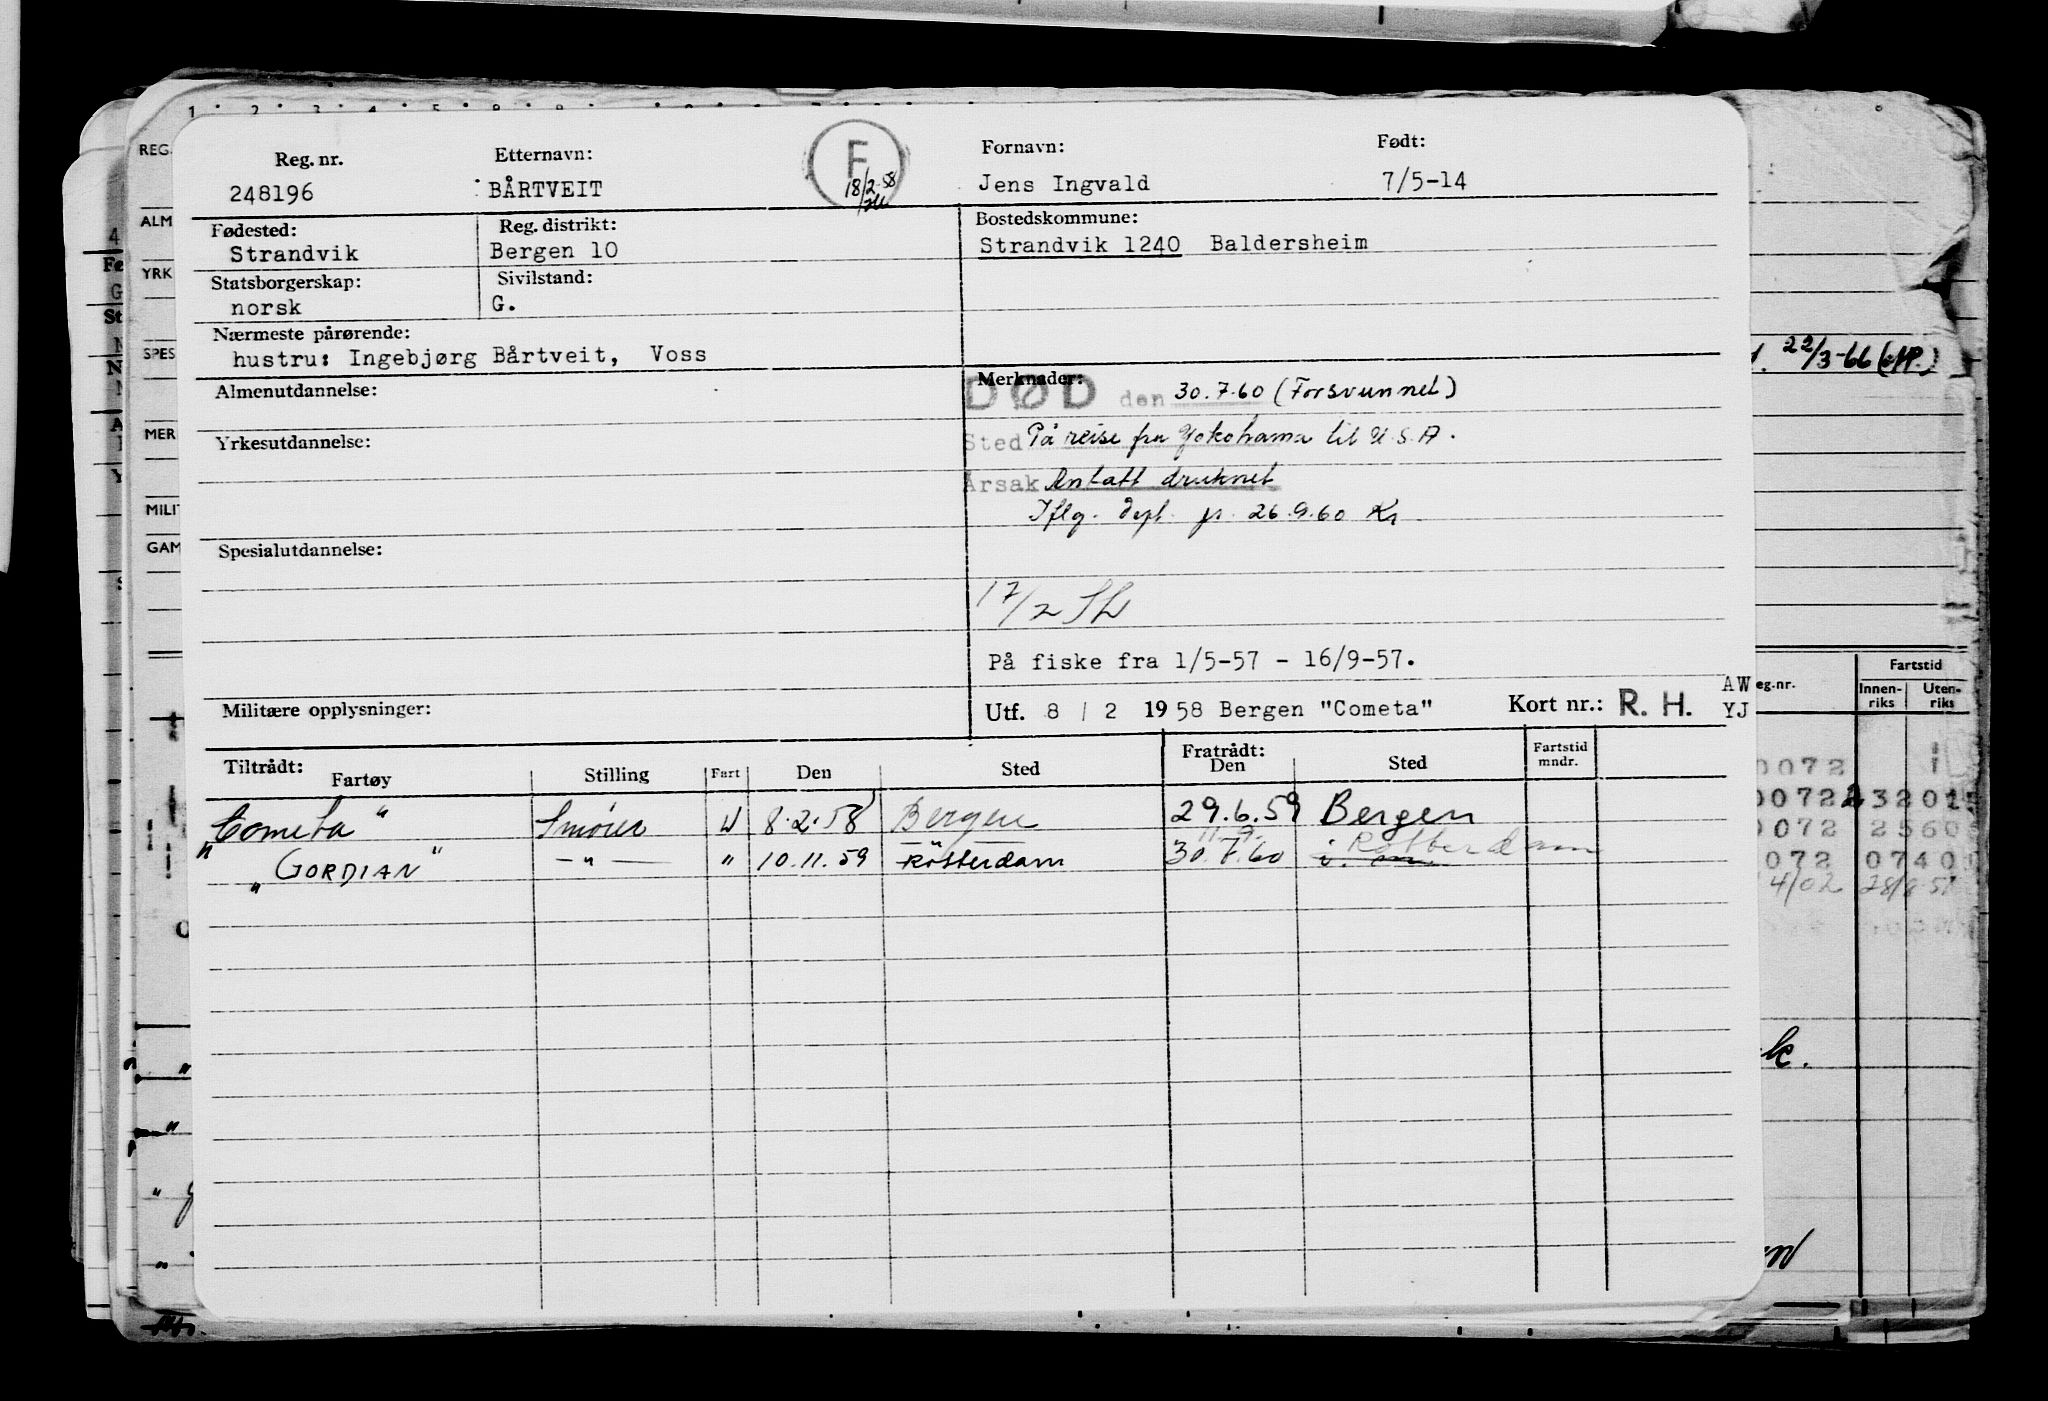 Reg. nr. Etternavn: F Fornavn: Født:
248196 BÅRTVEIT 18/2-58 Jens Ingvald 7/5-14
Fødested: Reg. distrikt: Bostedskommune:
Strandvik Bergen 10 Strandvik 1240 Baldersheim
Statsborgerskap: Sivilstand:
norsk G.
Nærmeste pårørende:
hustru: Ingebjørg Bårtveit, Voss
Almenutdannelse:
Yrkesutdannelse:
Spesialutdannelse:
Militære opplysninger:
Merknader:
DØD den 30.7.60 (Forsvunnet)
Sted På reise fra Yokohama til U.S.A.
Årsak Antatt druknet
Iflg. dept. 26.9.60 Kr
17/2 SL
På fiske fra 1/5-57 - 16/9-57.
Utf. 8 / 2 1958 Bergen "Cometa" Kort nr.: R. H.
AW
YJ
Tiltrådt: Fratrådt:
Fartøy Stilling Fart Den Sted Den Sted Fartstid mndr.
"Cometa" Smører U 8.2.58 Bergen 29.6.59 Bergen
"GORDIAN" -"- " 10.11.59 Rotterdam 30.7.60 Rotterdam
REG.
ALM
YRK
SPES
MER
MILIT
GAM
22/3-66
eg.nr. Fartstid
Innen-riks Uten-riks
0072
0072 3201
0072 2560
072 0740
4/02 28/8 51